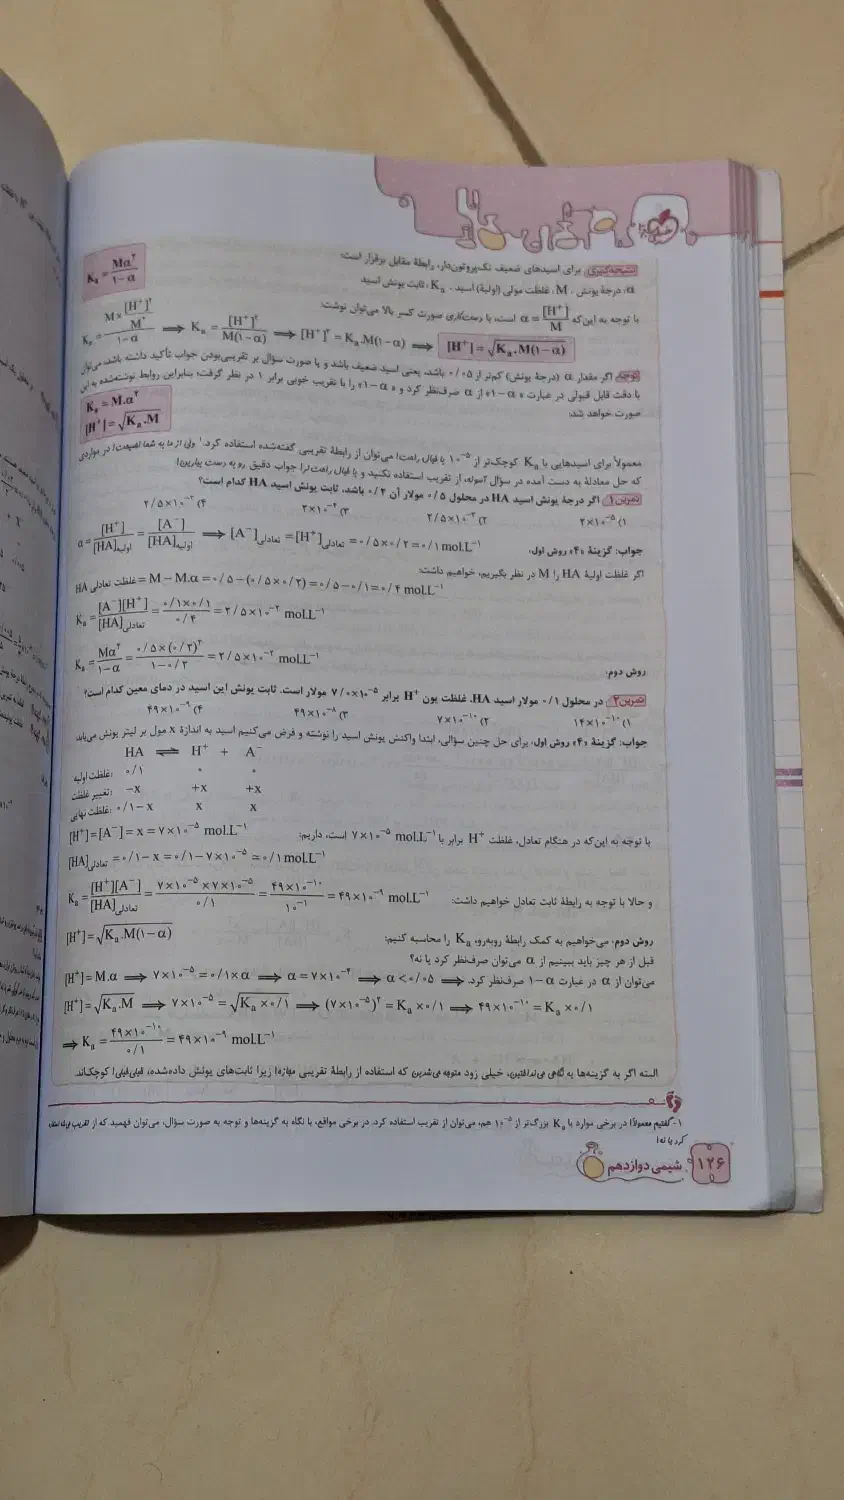 نتیجه‌گیری برای اسیدهای ضعیف تک‌پروتون‌دار، رابطهٔ مقابل برقرار است:
Kₐ = Mα² / ۱−α
α: درجهٔ یونش، M: غلظت مولی (اولیهٔ) اسید، Kₐ: ثابت یونش اسید
با توجه به این‌که α = [H⁺] / M است، با دست‌کاری صورت کسر بالا می‌توان نوشت:
Kₐ = (M × [H⁺]² / M²) / ۱−α ⟹ Kₐ = [H⁺]² / M(۱−α) ⟹ [H⁺]² = Kₐ.M(۱−α) ⟹ [H⁺] = √Kₐ.M(۱−α)
توجه اگر مقدار α (درجهٔ یونش) کم‌تر از ۰/۰۵ باشد، یعنی اسید ضعیف باشد و یا صورت سؤال بر تقریبی‌بودن جواب تأکید داشته باشد، می‌توان
با دقت قابل قبولی در عبارت «۱−α» از α صرف‌نظر کرد و «۱−α» را با تقریب خوبی برابر ۱ در نظر گرفت؛ بنابراین روابط نوشته‌شده به این
صورت خواهد شد:
Kₐ = M.α²
[H⁺] = √Kₐ.M
معمولاً برای اسیدهایی با Kₐ کوچک‌تر از ۱۰⁻⁵ با خیال راحت! می‌توان از رابطهٔ تقریبی گفته‌شده استفاده کرد.¹ ولی از ما به شما نصیحت! در مواردی
که حل معادلهٔ به دست آمده در سؤال آسونه، از تقریب استفاده نکنید و با خیال راحت‌تر! جواب دقیق رو به دست بیارین!
تمرین۱ اگر درجهٔ یونش اسید HA در محلول ۰/۵ مولار آن ۰/۲ باشد، ثابت یونش اسید HA کدام است؟
۱) ۲×۱۰⁻⁵ ۲) ۲/۵×۱۰⁻³ ۳) ۲×۱۰⁻⁴ ۴) ۲/۵×۱۰⁻²
جواب: گزینهٔ «۴» روش اول:
α = [H⁺] / [HA]اولیه = [A⁻] / [HA]اولیه ⟹ [A⁻]تعادلی = [H⁺]تعادلی = ۰/۵×۰/۲ = ۰/۱ mol.L⁻¹
اگر غلظت اولیهٔ HA را M در نظر بگیریم، خواهیم داشت:
غلظت تعادلی HA = M − M.α = ۰/۵ − (۰/۵×۰/۲) = ۰/۵ − ۰/۱ = ۰/۴ mol.L⁻¹
Kₐ = [A⁻][H⁺] / [HA]تعادلی = ۰/۱×۰/۱ / ۰/۴ = ۲/۵×۱۰⁻² mol.L⁻¹
روش دوم:
Kₐ = Mα² / ۱−α = ۰/۵×(۰/۲)² / ۱−۰/۲ = ۲/۵×۱۰⁻² mol.L⁻¹
تمرین۲ در محلول ۰/۱ مولار اسید HA، غلظت یون H⁺ برابر ۷/۰×۱۰⁻⁵ مولار است. ثابت یونش این اسید در دمای معین کدام است؟
۱) ۱۴×۱۰⁻¹⁰ ۲) ۷×۱۰⁻¹⁰ ۳) ۴۹×۱۰⁻⁸ ۴) ۴۹×۱۰⁻⁹
جواب: گزینهٔ «۴» روش اول: برای حل چنین سؤالی، ابتدا واکنش یونش اسید را نوشته و فرض می‌کنیم اسید به اندازهٔ x مول بر لیتر یونش می‌یابد
HA ⇌ H⁺ + A⁻
غلظت اولیه: ۰/۱ ۰ ۰
تغییر غلظت: −x +x +x
غلظت نهایی: ۰/۱−x x x
با توجه به این‌که در هنگام تعادل، غلظت H⁺ برابر با ۷×۱۰⁻⁵ mol.L⁻¹ است، داریم:
[H⁺] = [A⁻] = x = ۷×۱۰⁻⁵ mol.L⁻¹
[HA]تعادلی = ۰/۱−x = ۰/۱−۷×۱۰⁻⁵ ≃ ۰/۱ mol.L⁻¹
و حالا با توجه به رابطهٔ ثابت تعادل خواهیم داشت:
Kₐ = [H⁺][A⁻] / [HA]تعادلی = ۷×۱۰⁻⁵×۷×۱۰⁻⁵ / ۰/۱ = ۴۹×۱۰⁻¹⁰ / ۱۰⁻¹ = ۴۹×۱۰⁻⁹ mol.L⁻¹
روش دوم: می‌خواهیم به کمک رابطهٔ روبه‌رو، Kₐ را محاسبه کنیم:
[H⁺] = √Kₐ.M(۱−α)
قبل از هر چیز باید ببینیم از α می‌توان صرف‌نظر کرد یا نه؟
[H⁺] = M.α ⟹ ۷×۱۰⁻⁵ = ۰/۱×α ⟹ α = ۷×۱۰⁻⁴ ⟹ α < ۰/۰۵ ⟹ می‌توان از α در عبارت ۱−α صرف‌نظر کرد.
[H⁺] = √Kₐ.M ⟹ ۷×۱۰⁻⁵ = √Kₐ×۰/۱ ⟹ (۷×۱۰⁻⁵)² = Kₐ×۰/۱ ⟹ ۴۹×۱۰⁻¹⁰ = Kₐ×۰/۱
⟹ Kₐ = ۴۹×۱۰⁻¹⁰ / ۰/۱ = ۴۹×۱۰⁻⁹ mol.L⁻¹
البته اگر به گزینه‌ها یه نگاهی می‌نداختین، خیلی زود متوجه می‌شدین که استفاده از رابطهٔ تقریبی مجازه! زیرا ثابت‌های یونش داده‌شده، خیلی‌خیلی! کوچک‌اند.
۱- گفتیم معمولاً! در برخی موارد با Kₐ بزرگ‌تر از ۱۰⁻⁵ هم، می‌توان از تقریب استفاده کرد. در برخی مواقع، با نگاه به گزینه‌ها و توجه به صورت سؤال، می‌توان فهمید که از تقریب می‌شه استفاده
کرد یا نه!
۱۲۶ شیمی دوازدهم